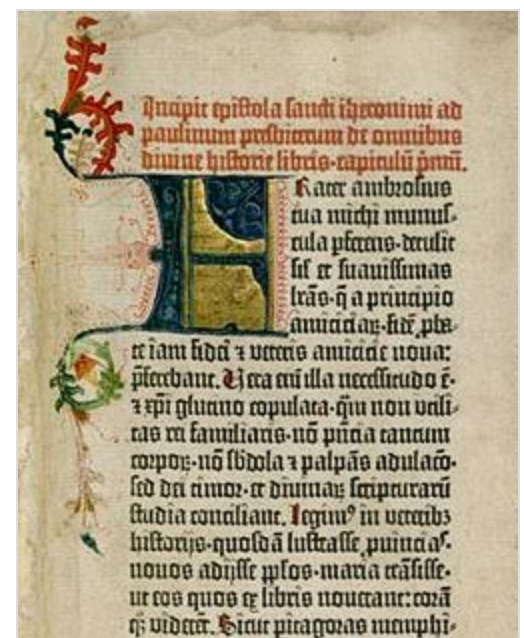 Incipit epistola sancti iheronimi ad
paulinum presbiterum de omnibus
divine historie libris·capitulū p̄mū.
FRater ambrosius
tua michi munus-
cula p̲ferens·detulit
sil̛ et suauissimas
lrās·q̄ a principio
amiciciaꝝ·fidē ꝓba-
te iam fidei ⁊ veteris amicicie noua:
p̄ferebant. Vera eni̅ illa necessitudo ē·
⁊ xp̄i glutino copulata·q̄m non vtili-
tas rei familiaris·nō pn̄cia tantum
corpoꝝ·nō sb̄dola ⁊ palpās adulacō·
sed dei timor·et diuinaꝝ scripturarū
studia conciliant. Legimꝰ in veteribꝫ
historijs·quosdā lustrasse ꝓuincias·
nouos adijsse pp̄los·maria trāsisse·
ut eos quos ex libris nouerant: corā
qꝫ viderēt. Sicut pitagoras memphi-